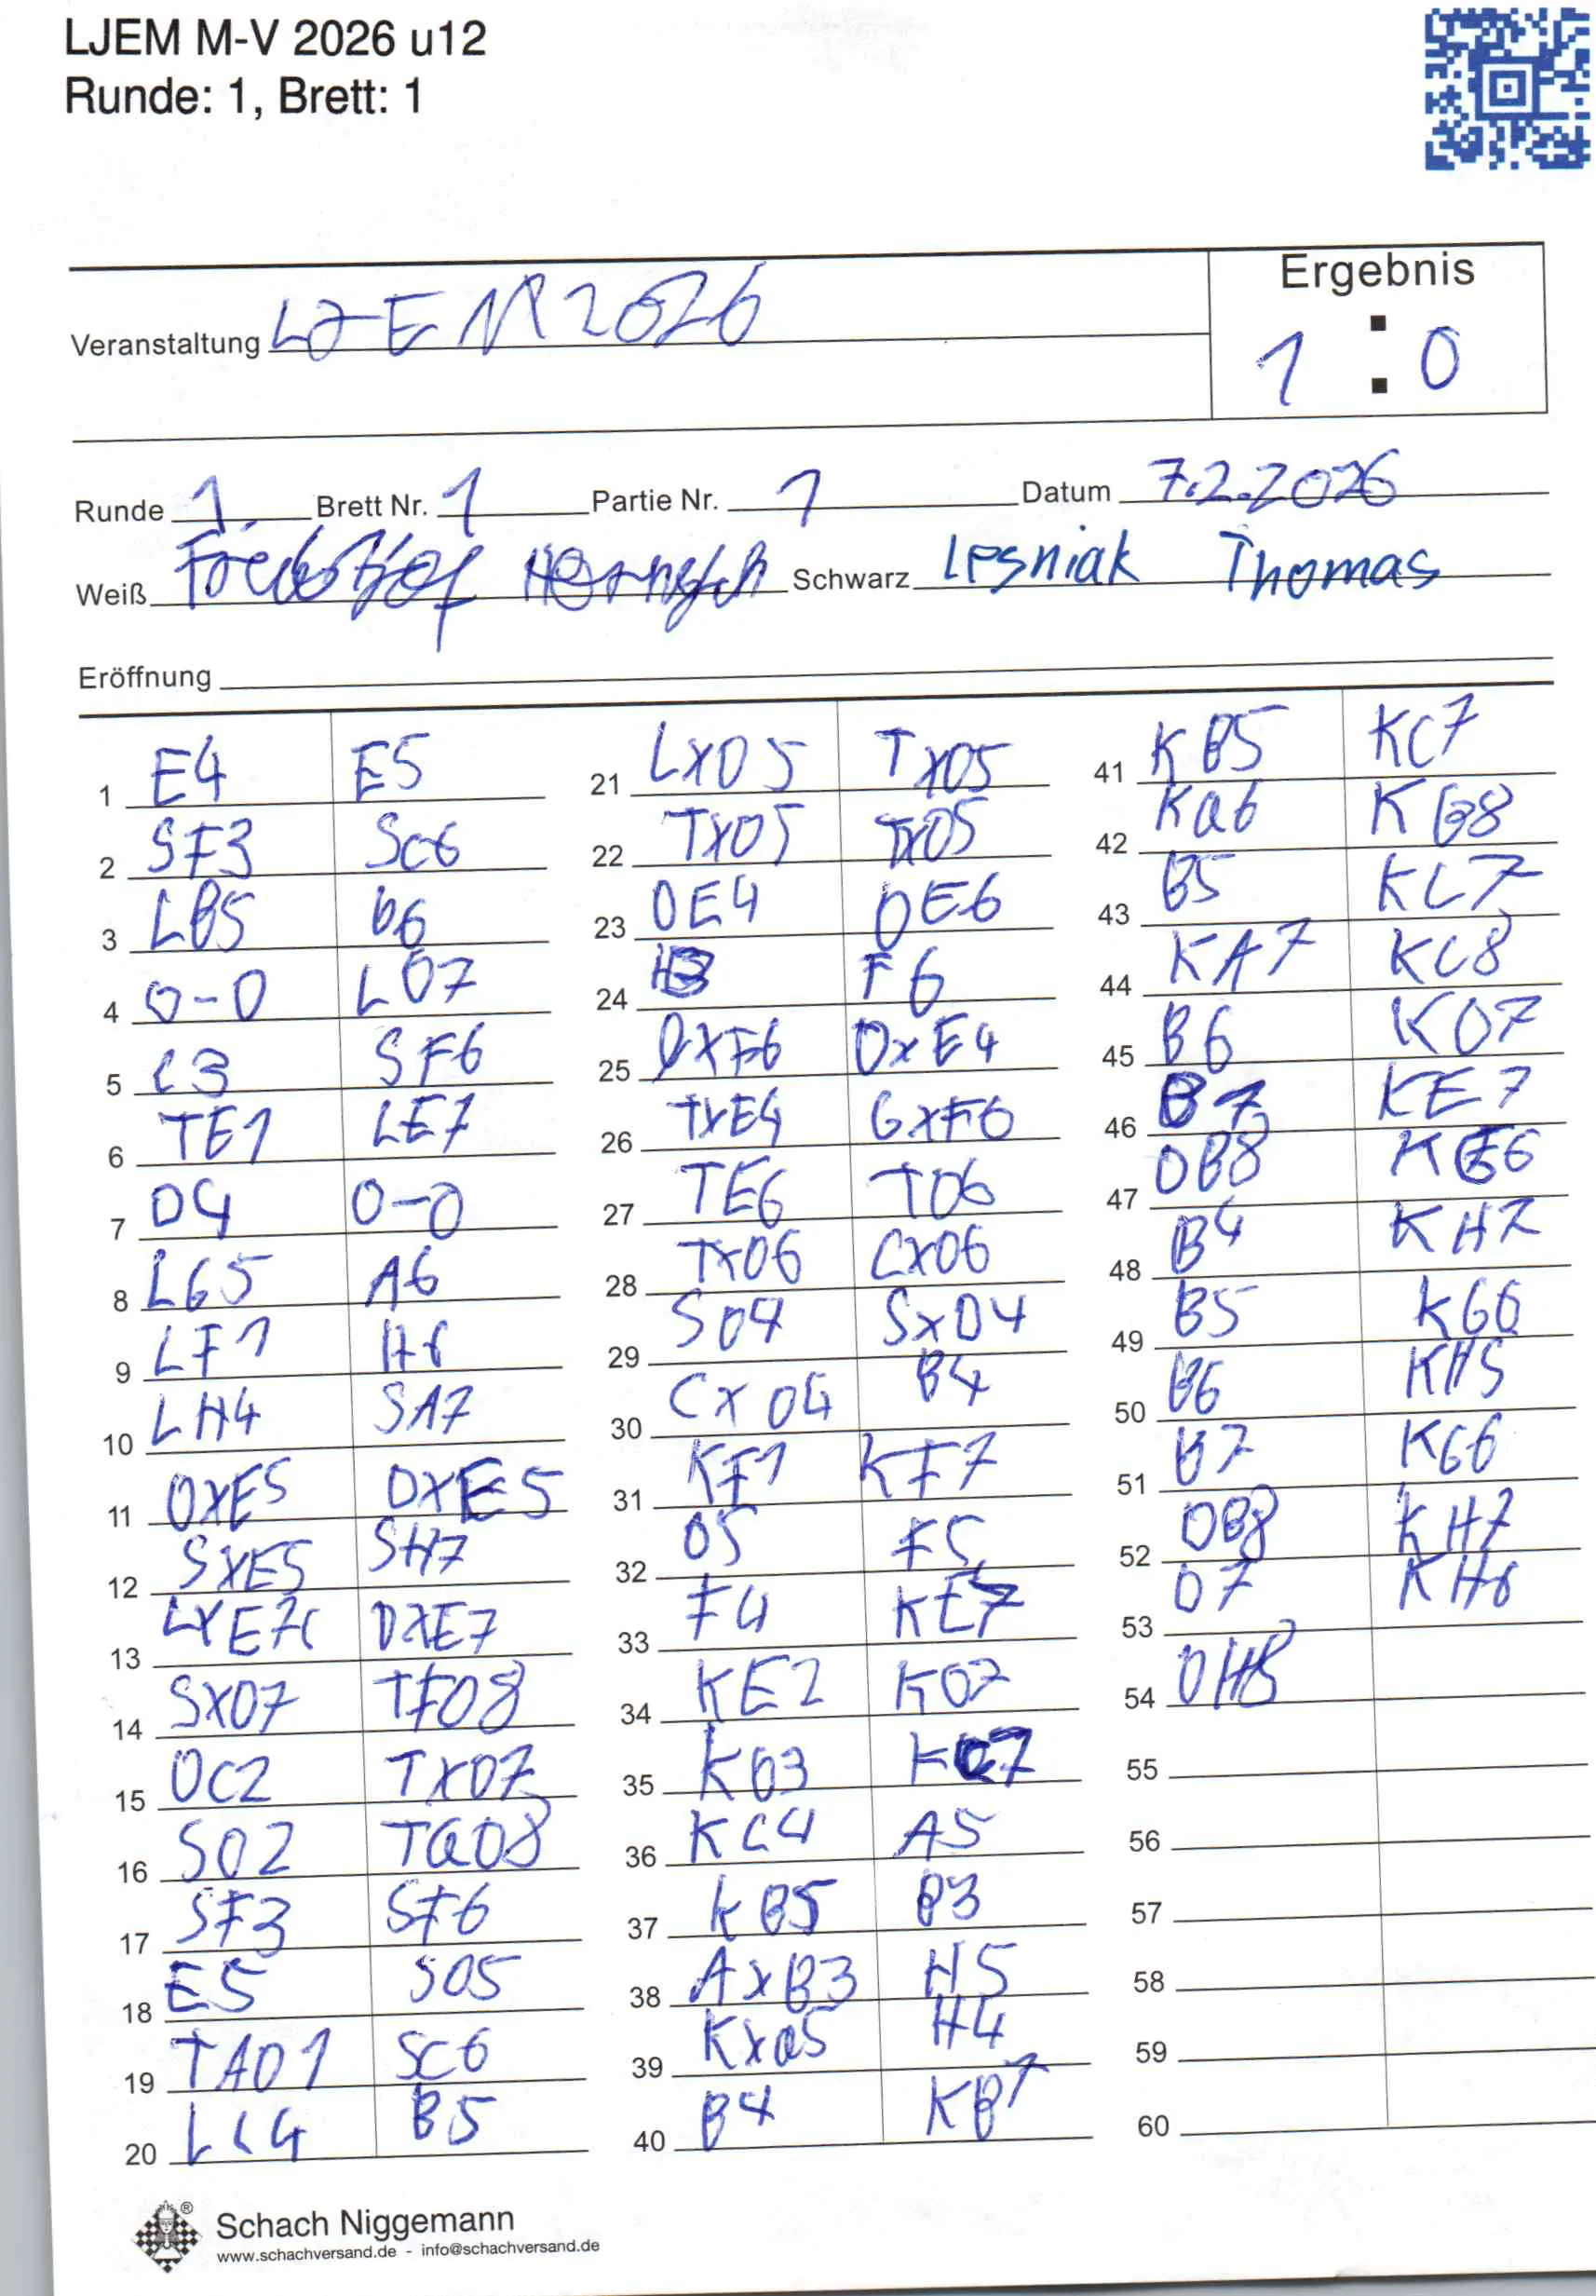 LJEM M-V 2026 u12
Runde: 1, Brett: 1
Ergebnis
Veranstaltung LJEM 2026
1 : 0
Runde 1. Brett Nr. 1 Partie Nr. 1 Datum 7.2.2026
Weiß Schwarz Lesniak Thomas
Eröffnung
1 E4 E5
2 SF3 SC6
3 LB5 D6
4 0-0 LD7
5 C3 SF6
6 TE1 LE7
7 D4 0-0
8 LG5 A6
9 LF1 H6
10 LH4 SA7
11 DXE5 DXE5
12 SXE5 SH7
13 LXE7 DXE7
14 SXD7 TFD8
15 DC2 TXD7
16 SD2 TaD8
17 SF3 SF6
18 E5 SD5
19 TAD1 SC6
20 LC4 B5
21 LXD5 TXD5
22 TXD5 TXD5
23 DE4 DE6
24 H3 F6
25 DXF6 DXE4
26 TXE4 GXF6
27 TE6 TD6
28 TXD6 CXD6
29 SD4 SXD4
30 CXD4 B4
31 KF1 KF7
32 D5 F5
33 F4 KE7
34 KE2 KD7
35 KD3 KC7
36 KC4 A5
37 KB5 B3
38 AXB3 H5
39 KXa5 H4
40 B4 KB7
41 KB5 KC7
42 Ka6 KB8
43 B5 KC7
44 KA7 KC8
45 B6 KD7
46 B7 KE7
47 DB8 KF6
48 B4 KH7
49 B5 KG6
50 B6 KH5
51 B7 KG6
52 DB8 KH7
53 D7 KH6
54 DH8
55
56
57
58
59
60
Schach Niggemann
www.schachversand.de - info@schachversand.de